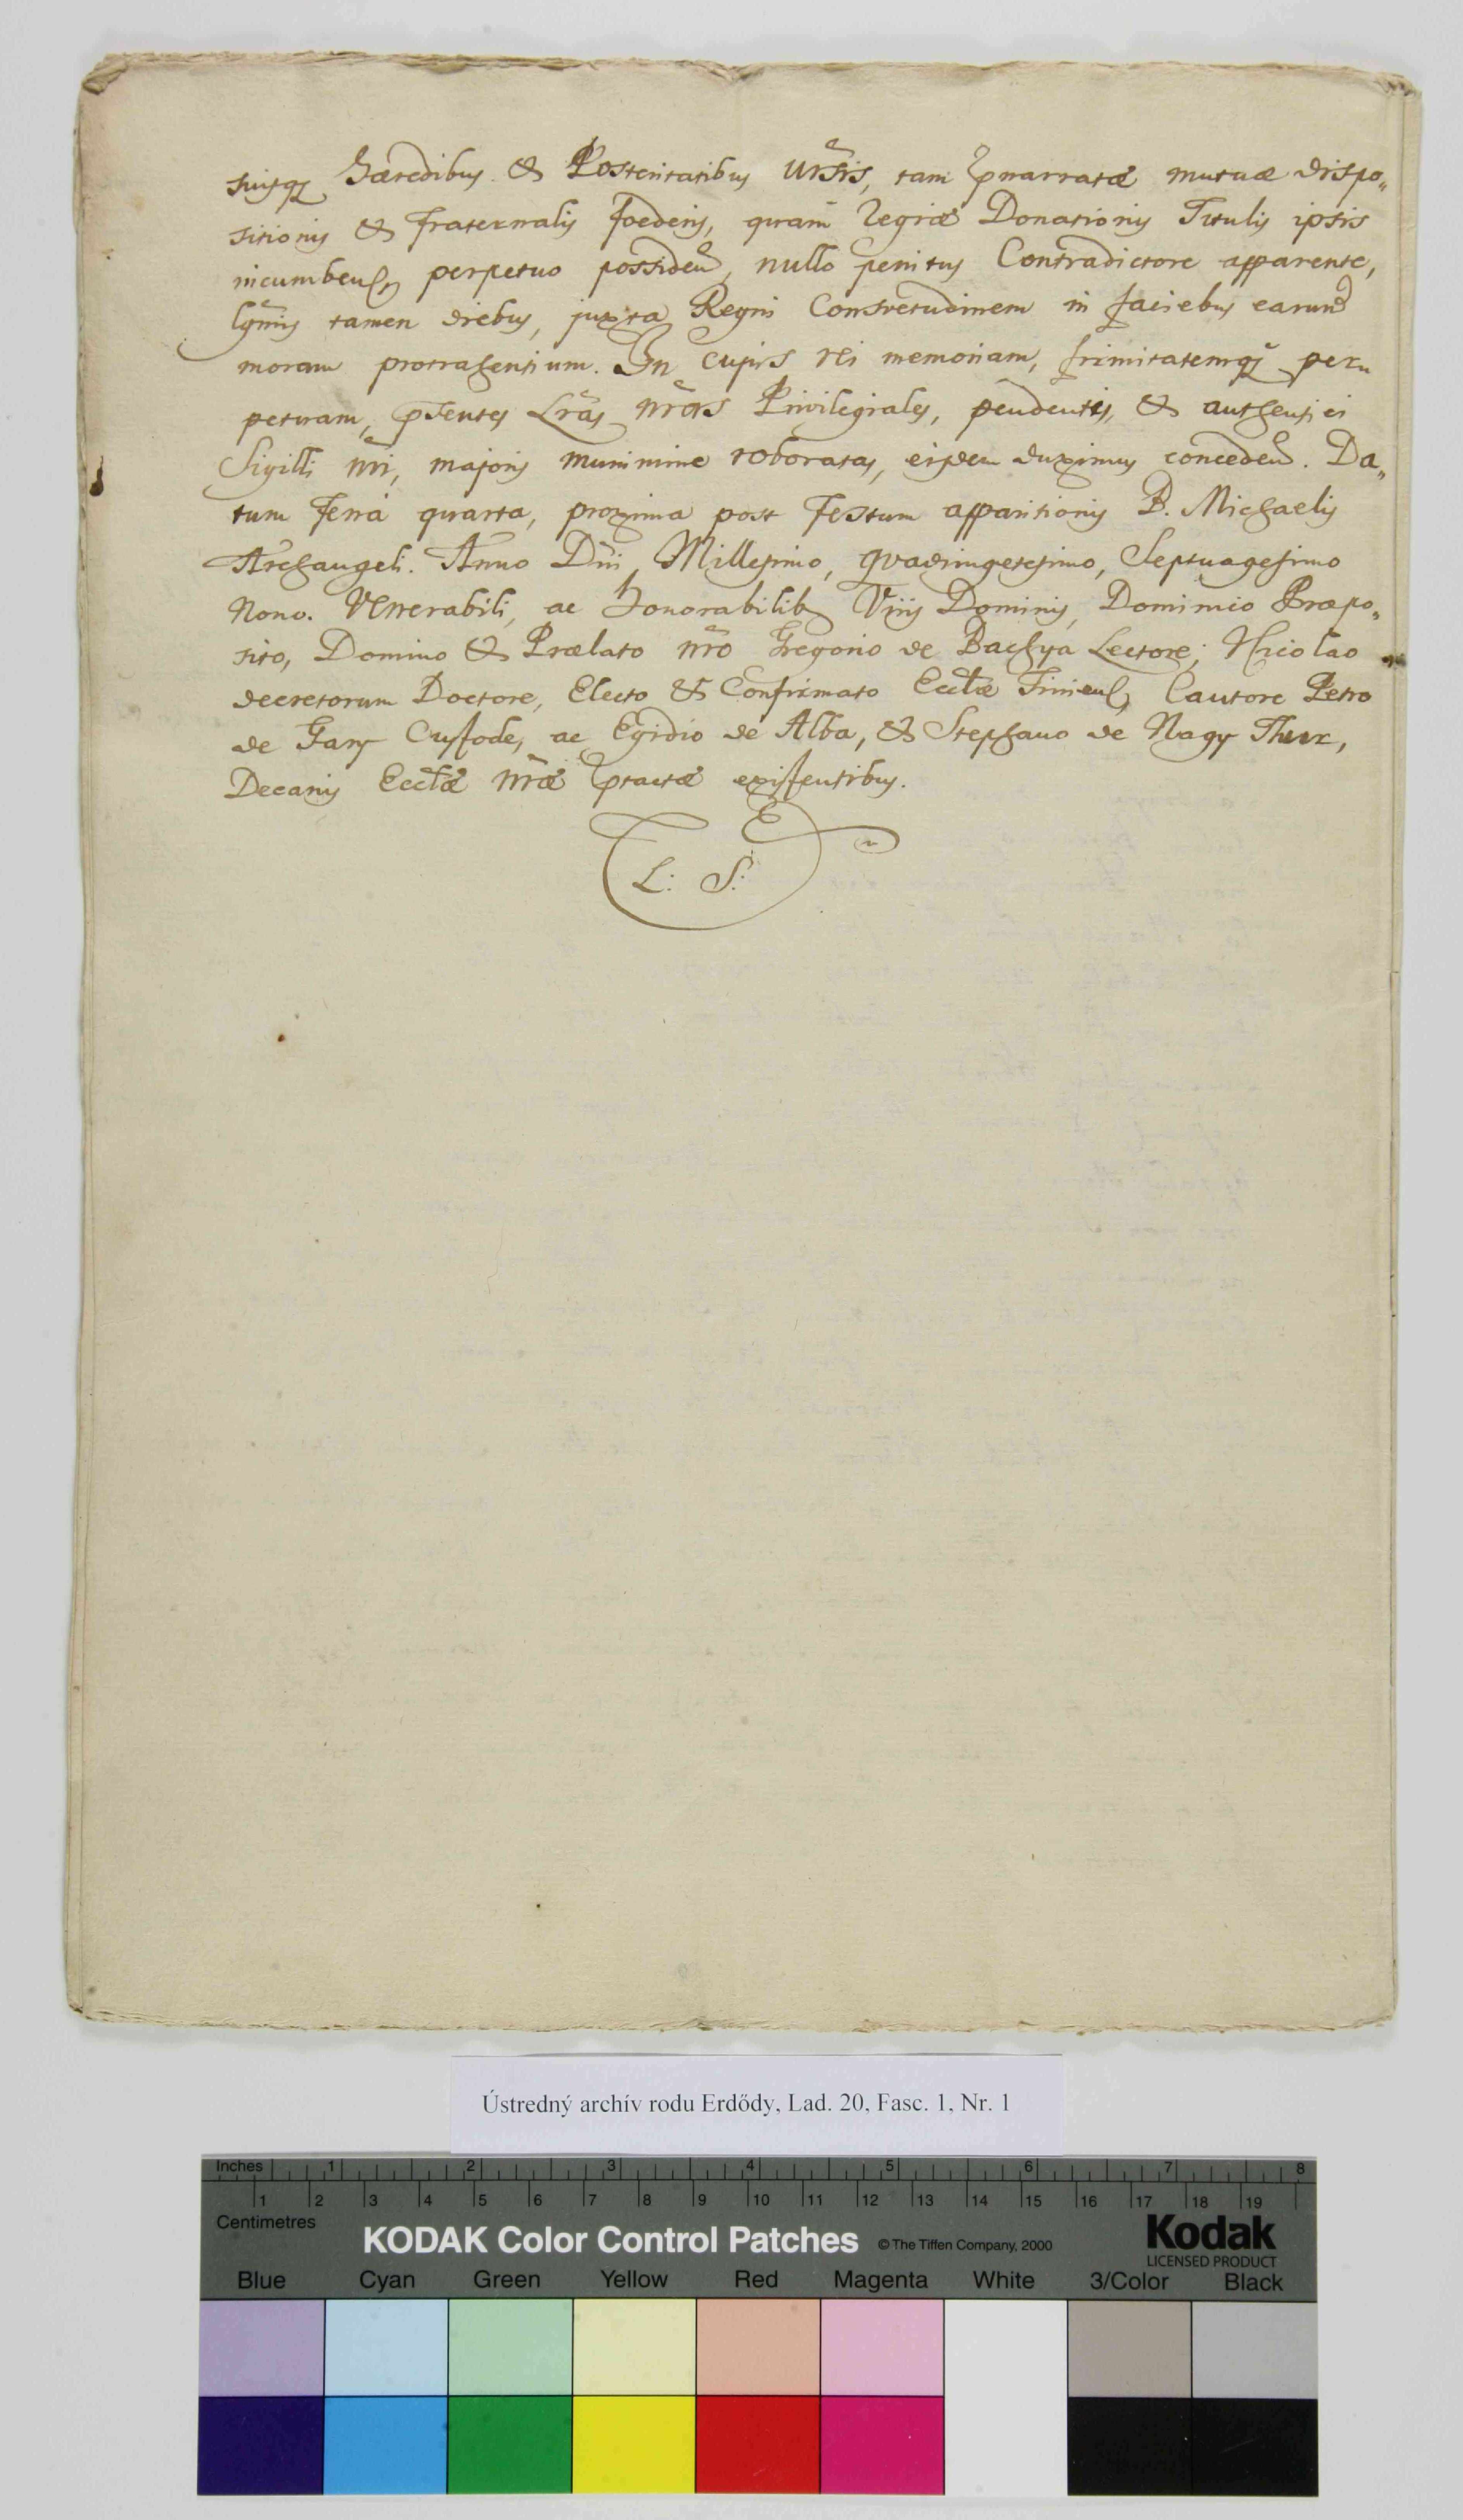 suisq₃ Hæredibus & Posteritatibus Ursis, tam pnarratæ mutuæ dispo„
sitionis & fraternalis foederis, quam Regiæ Donationis Titulis ipsis
incumben perpetuo possiden, nullo penitus Contradictore apparente,
lgmis tamen diebus, juxta Regni Consvetudinem in faciebus earund
moram protrahentium. In cujus rei memoriam, firmitatemq₃ per„
petuam, pséntes Lrās nrās Privilegiales, pendentis, & authentici
Sigilli nri, majoris munimine roboratas, eisdem duximus conceden. Da„
tum Feria quarta, proxima post Festum apparitionis B. Michaelis
Archangeli. Anno Dni, Millesimo, qvadringetesimo, Septuagesimo
Nono. Venerabili, ac Honorabilib₃ Viris Dominis, Dominico Præpo„
sito, Domino & Prælato nro Gregorio de Bachya Lectore; Nicolao
decretorum Doctore, Electo & Confirmato Ecctæ Tinien, Cantore Petro
de Gary Custode, ac Egidio de Alba, & Stephano de Nagy Thur,
Decanis Ecctæ nræ ptactæ existentibus.
L: S:
Ústredný archív rodu Erdődy, Lad. 20, Fasc. 1, Nr. 1
Inches 1 2 3 4 5 6 7 8
1 2 3 4 5 6 7 8 9 10 11 12 13 14 15 16 17 18 19
Centimetres
KODAK Color Control Patches © The Tiffen Company, 2000 Kodak
LICENSED PRODUCT
Blue Cyan Green Yellow Red Magenta White 3/Color Black